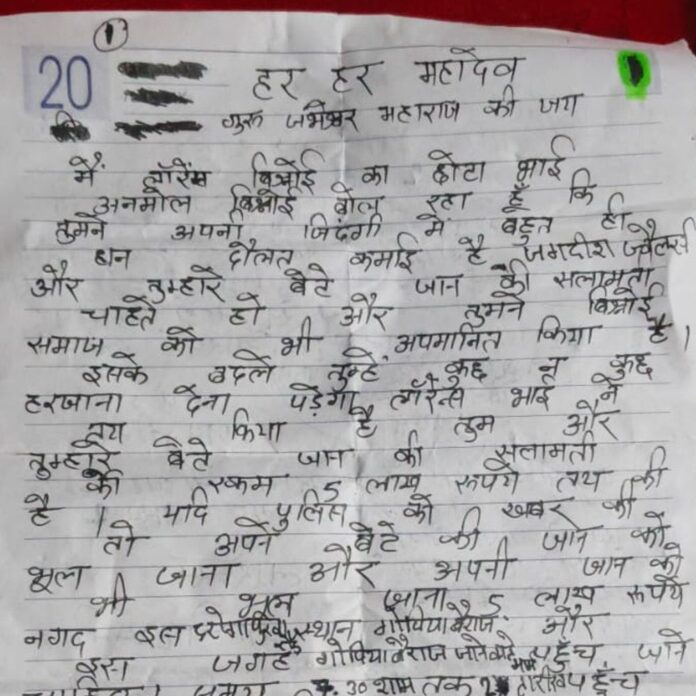 1
20 हर हर महादेव
गुरु जम्भेश्वर महाराज की जय
मैं लॉरेंस बिश्नोई का छोटा भाई
अनमोल बिश्नोई बोल रहा हूँ कि
तुमने अपनी जिंदगी में बहुत ही
धन दौलत कमाई है जगदीश ज्वैलर्स
और तुम्हारे बेटे जान की सलामती
चाहते हो और तुमने बिश्नोई
समाज को भी अपमानित किया है।
इसके बदले तुम्हें कुछ न कुछ
हरजाना देना पड़ेगा लॉरेन्स भाई ने
तय किया है तुम और
तुम्हारे बेटे जान की सलामती
की रकम 5 लाख रूपये तय की
है। यदि पुलिस को खबर की
तो अपने बेटे की जान को
भूल जाना और अपनी जान को
भी भूल जाना 5 लाख रूपये
नगद इस स्थान और
इस जगह पहुँच जाने
समय 7:30 शाम तक पहुँच